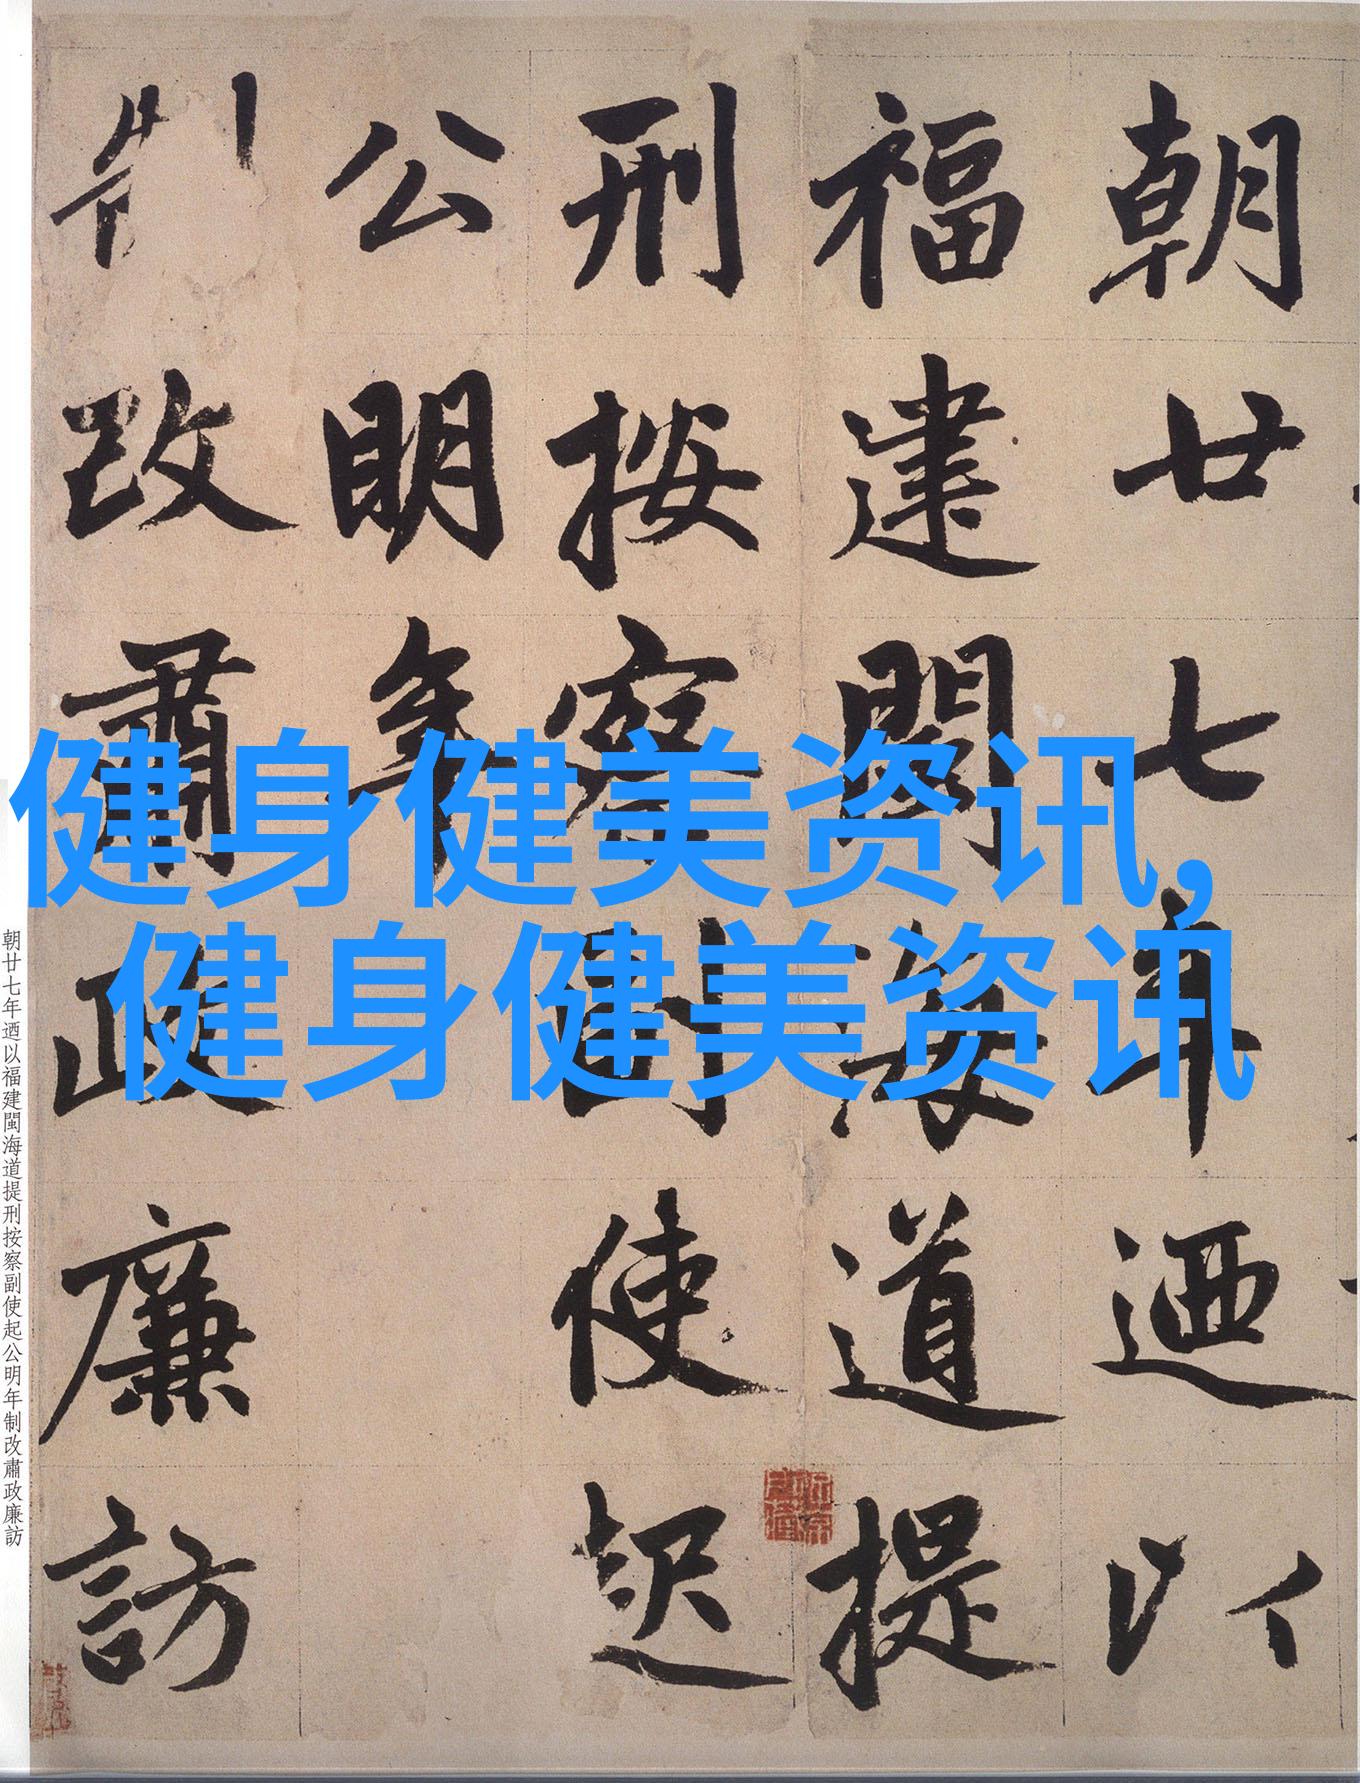 朝廿七年迺以
福建閩海道提
刑按察副使起
公明年
制改肅政廉訪
健身健美资讯,
健身健美资讯
朝廿七年迺以福建閩海道提刑按察副使起公明年制改肅政廉訪